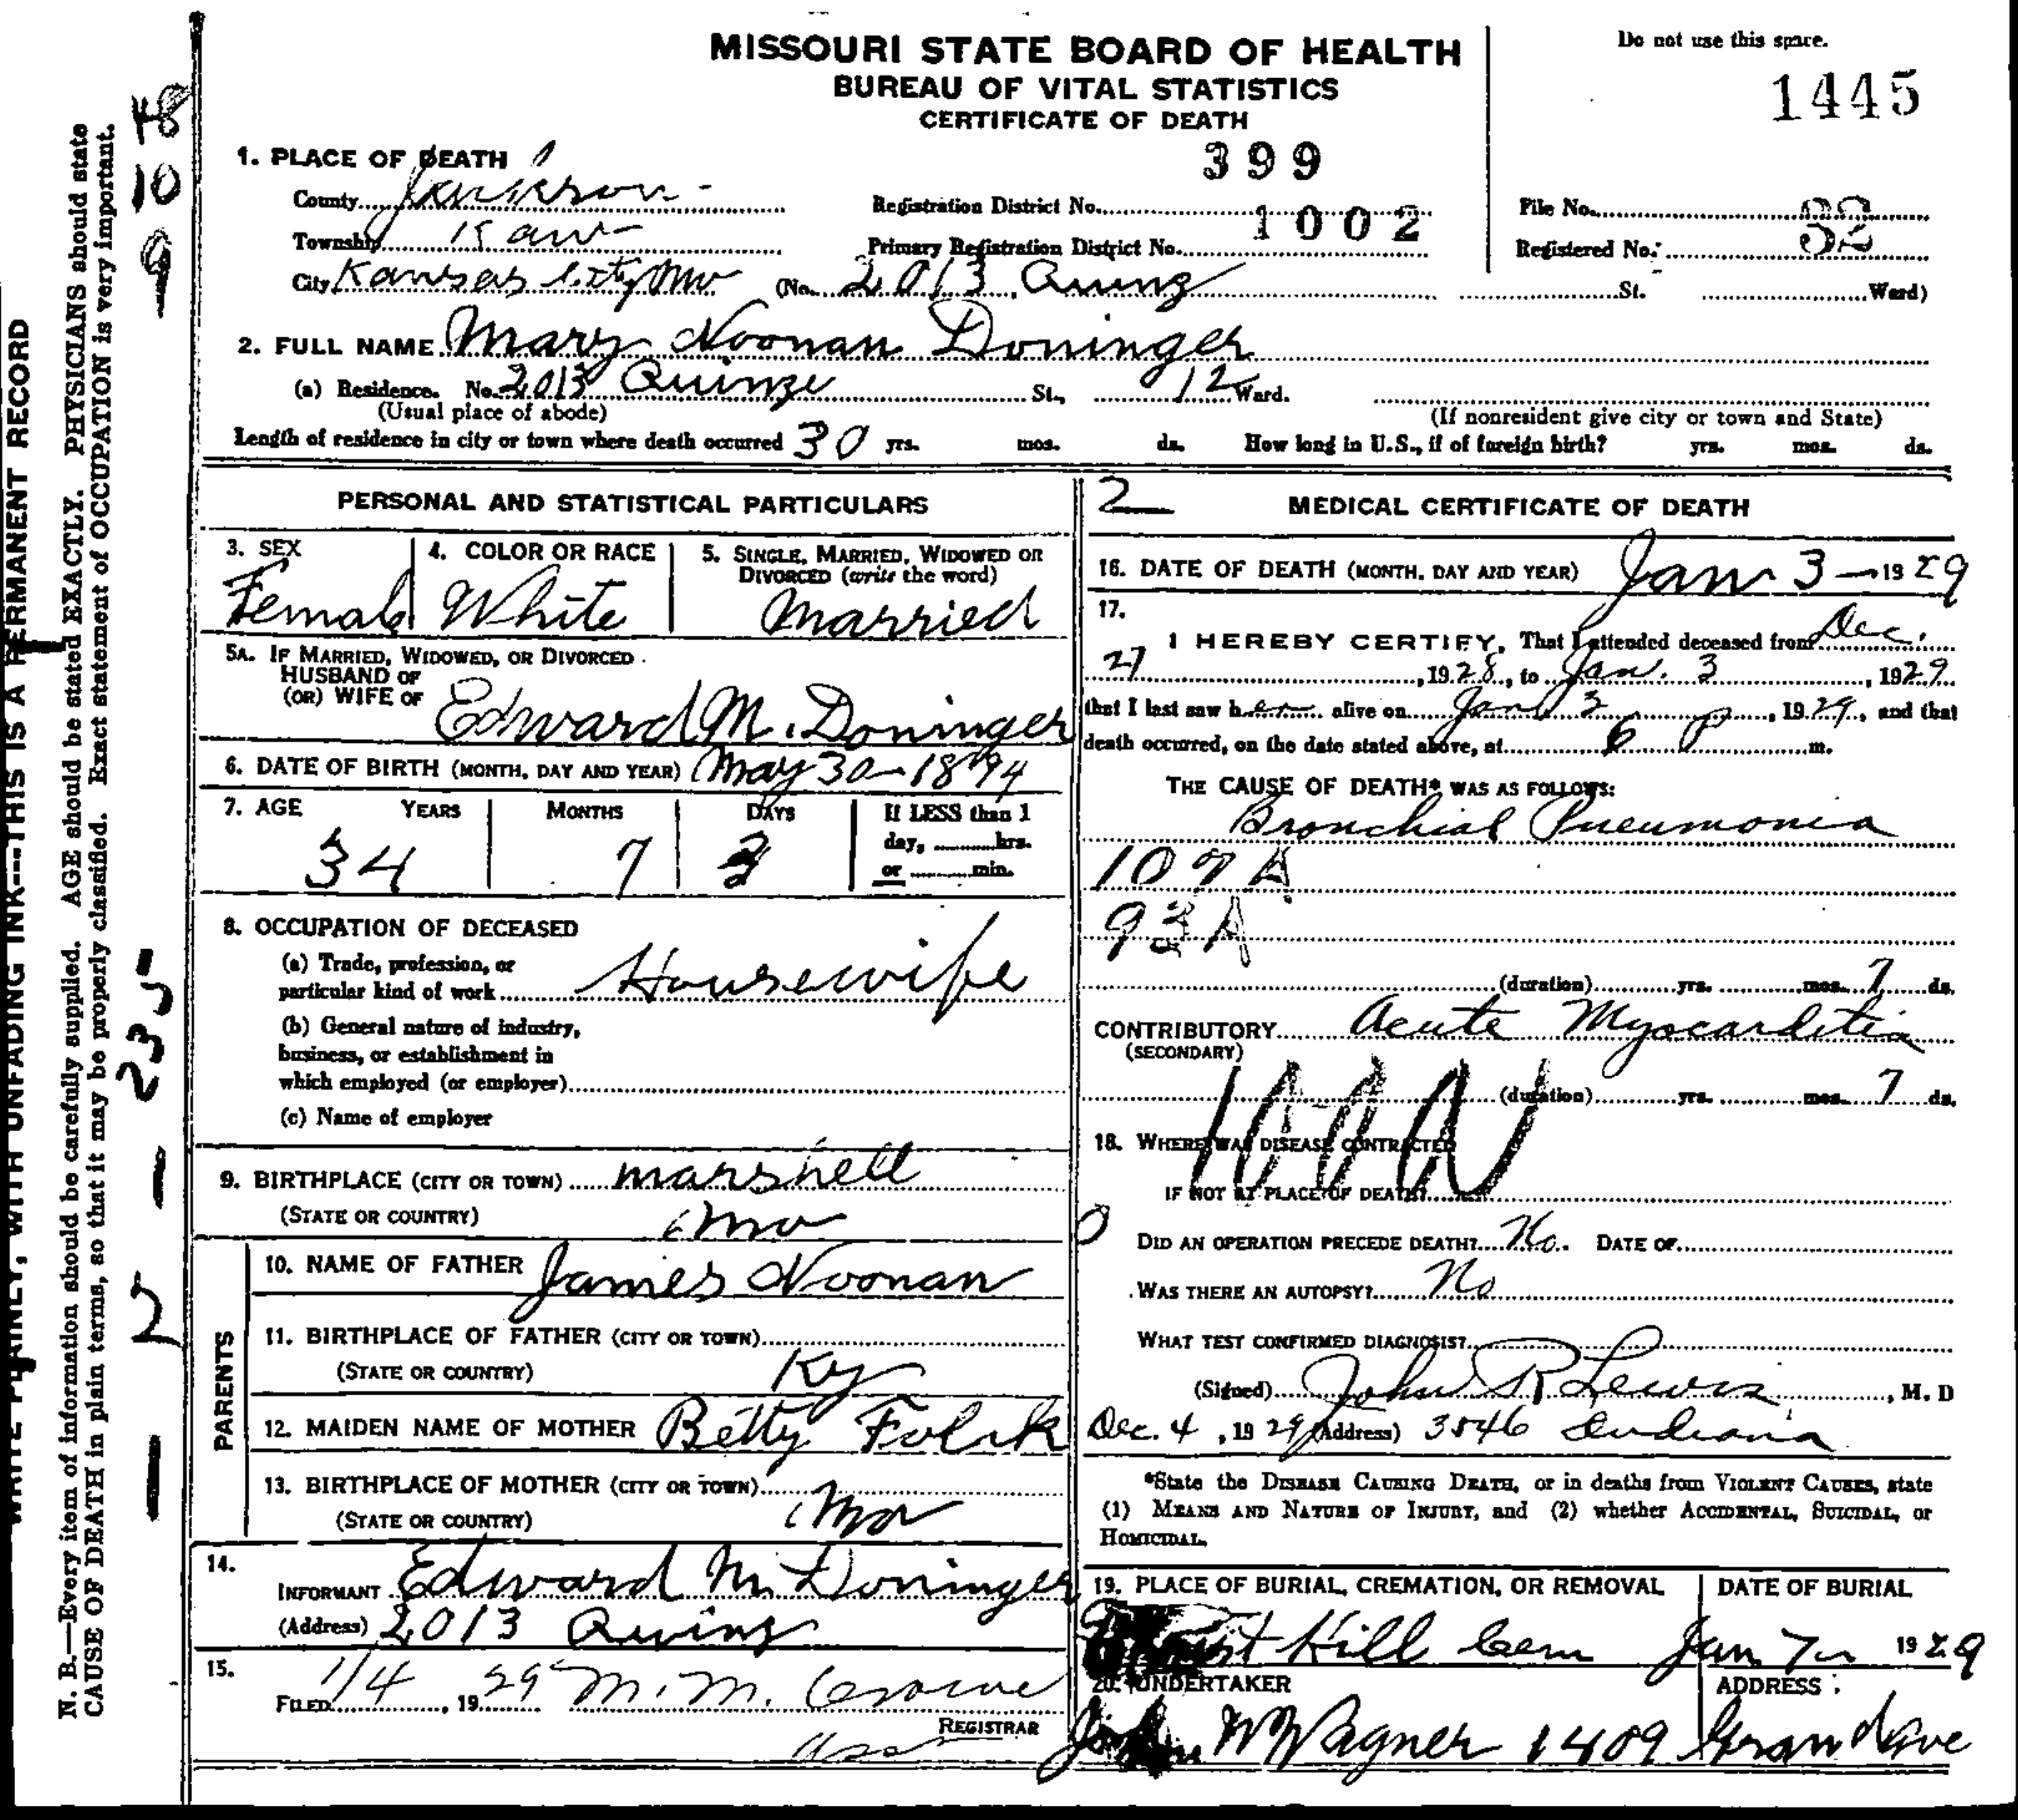 MISSOURI STATE BOARD OF HEALTH
BUREAU OF VITAL STATISTICS
CERTIFICATE OF DEATH
Do not use this space.
1445
1. PLACE OF DEATH
County Jackson
Township Kaw
City Kansas City Mo (No. 2013 St. Ward)
399
Registration District No.
Primary Registration District No. 1002
File No.
Registered No. 32
2. FULL NAME Mary Noonan Doninger
(a) Residence. No. 2013 Quinze St., 12 Ward.
(Usual place of abode)
(If nonresident give city or town and State)
Length of residence in city or town where death occurred 30 yrs. mos. ds. How long in U.S., if of foreign birth? yrs. mos. ds.
PERSONAL AND STATISTICAL PARTICULARS
3. SEX
Female
4. COLOR OR RACE
White
5. SINGLE, MARRIED, WIDOWED OR
DIVORCED (write the word)
Married
5A. IF MARRIED, WIDOWED, OR DIVORCED
HUSBAND OF
(OR) WIFE OF Edward M. Doninger
6. DATE OF BIRTH (MONTH, DAY AND YEAR) May 30 - 1894
7. AGE YEARS MONTHS DAYS If LESS than 1
day, hrs.
or min.
34 7 3
8. OCCUPATION OF DECEASED
(a) Trade, profession, or
particular kind of work Housewife
(b) General nature of industry,
business, or establishment in
which employed (or employer)
(c) Name of employer
9. BIRTHPLACE (CITY OR TOWN) Marshell
(STATE OR COUNTRY) Mo
PARENTS
10. NAME OF FATHER James Noonan
11. BIRTHPLACE OF FATHER (CITY OR TOWN)
(STATE OR COUNTRY) Ky
12. MAIDEN NAME OF MOTHER Betty
13. BIRTHPLACE OF MOTHER (CITY OR TOWN)
(STATE OR COUNTRY) Mo
14.
INFORMANT Edward M. Doninger
(Address) 2013
15.
FILED 1/4, 1929 M. M.
REGISTRAR
2
MEDICAL CERTIFICATE OF DEATH
16. DATE OF DEATH (MONTH, DAY AND YEAR) Jan 3 - 1929
17.
I HEREBY CERTIFY, That I attended deceased from Dec.
27, 1928, to Jan. 3, 1929
that I last saw her alive on Jan 3, 1929, and that
death occurred, on the date stated above, at 6 P m.
THE CAUSE OF DEATH* WAS AS FOLLOWS:
Bronchial Pneumonia
107 A
93 A
(duration) yrs. mos. 7 ds.
CONTRIBUTORY Acute Myocarditis
(SECONDARY)
(duration) yrs. mos. 7 ds.
18. WHERE WAS DISEASE CONTRACTED
IF NOT AT PLACE OF DEATH?
DID AN OPERATION PRECEDE DEATH? No. DATE OF
WAS THERE AN AUTOPSY? No
WHAT TEST CONFIRMED DIAGNOSIS?
(Signed) John R Lewis, M. D
Dec. 4, 1929 (Address) 3546 Indiana
*State the DISEASE CAUSING DEATH, or in deaths from VIOLENT CAUSES, state
(1) MEANS AND NATURE OF INJURY, and (2) whether ACCIDENTAL, SUICIDAL, or
HOMICIDAL.
19. PLACE OF BURIAL, CREMATION, OR REMOVAL
Hill Cem
DATE OF BURIAL
Jan 7 1929
20. UNDERTAKER
Wagner
ADDRESS
1409 Grand Ave
WRITE PLAINLY, WITH UNFADING INK---THIS IS A PERMANENT RECORD
N. B.—Every item of information should be carefully supplied. AGE should be stated EXACTLY. PHYSICIANS should state
CAUSE OF DEATH in plain terms, so that it may be properly classified. Exact statement of OCCUPATION is very important.
48
10
9